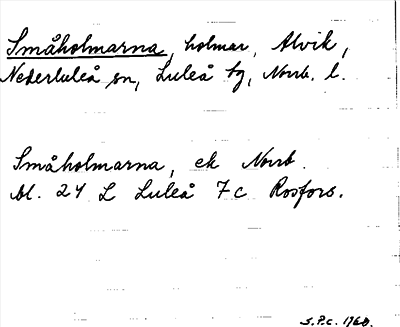 Småholmarna, holmar, Alvik,
Nederluleå sn, Luleå tg, Norrb. l.
Småholmarna, ek Norrb.
bl. 24 L Luleå 7c Rosfors.
S.P.C. 1960.